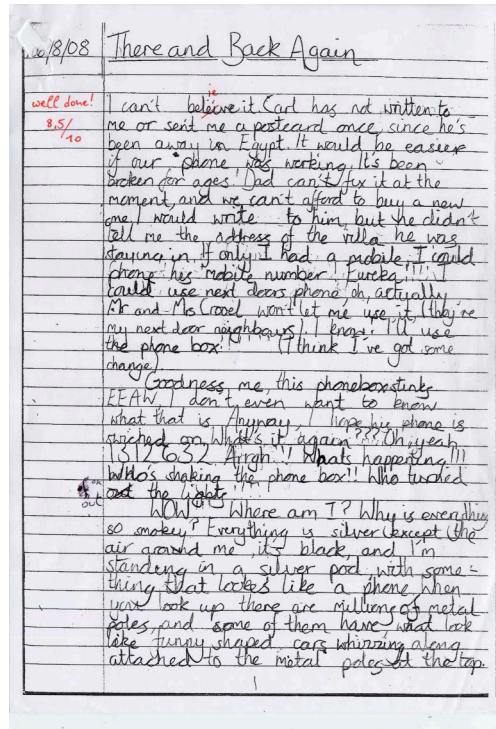 /8/08 There and Back Again
well done!
8,5/10
ie
I can't beleive it. Carl has not written to
me or sent me a postcard once, since he's
been away in Egypt. It would be easier
if our phone was working. It's been
broken for ages! Dad can't fix it at the
moment, and we can't afford to buy a new
one. I would write to him, but he didn't
tell me the address of the villa he was
staying in. If only I had a mobile, I could
phone his mobile number! Eureka!!!! I
could use next doors phone, oh, actually
Mr and Mrs won't let me use it (they're
my next door neighbours). I know! I'll use
the phone box! (I think I've got some
change)
Goodness me, this phonebox stinks
EEAW, I don't even want to know
what that is. Anyway, I hope his phone is
swiched on. What's it again??? Oh, yeah
13129632 Arrgh!!! Whats happening!!!
Who's shaking the phone box!! Who turned
out the lights
out
WOW!! Where am I? Why is everything
so smokey? Everything is silver (except the
air around me it's black, and I'm
standing in a silver pod with some-
thing that lookes like a phone when
you look up there are millions of metal
poles, and some of them have what look
like funny shaped cars whirring along
attached to the metal poles at the top.
1